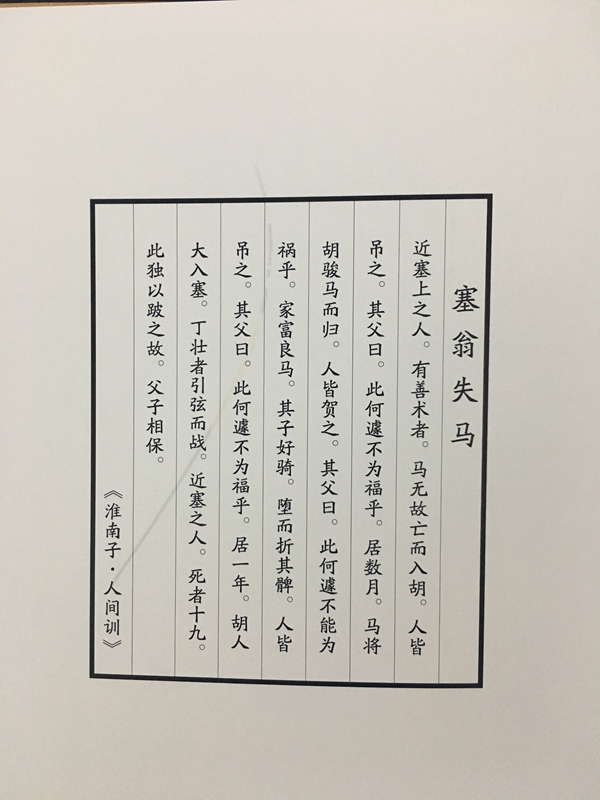 塞翁失马
近塞上之人。有善术者。马无故亡而入胡。人皆
吊之。其父曰。此何遽不为福乎。居数月。马将
胡骏马而归。人皆贺之。其父曰。此何遽不能为
祸乎。家富良马。其子好骑。堕而折其髀。人皆
吊之。其父曰。此何遽不为福乎。居一年。胡人
大入塞。丁壮者引弦而战。近塞之人。死者十九。
此独以跛之故。父子相保。
《淮南子·人间训》